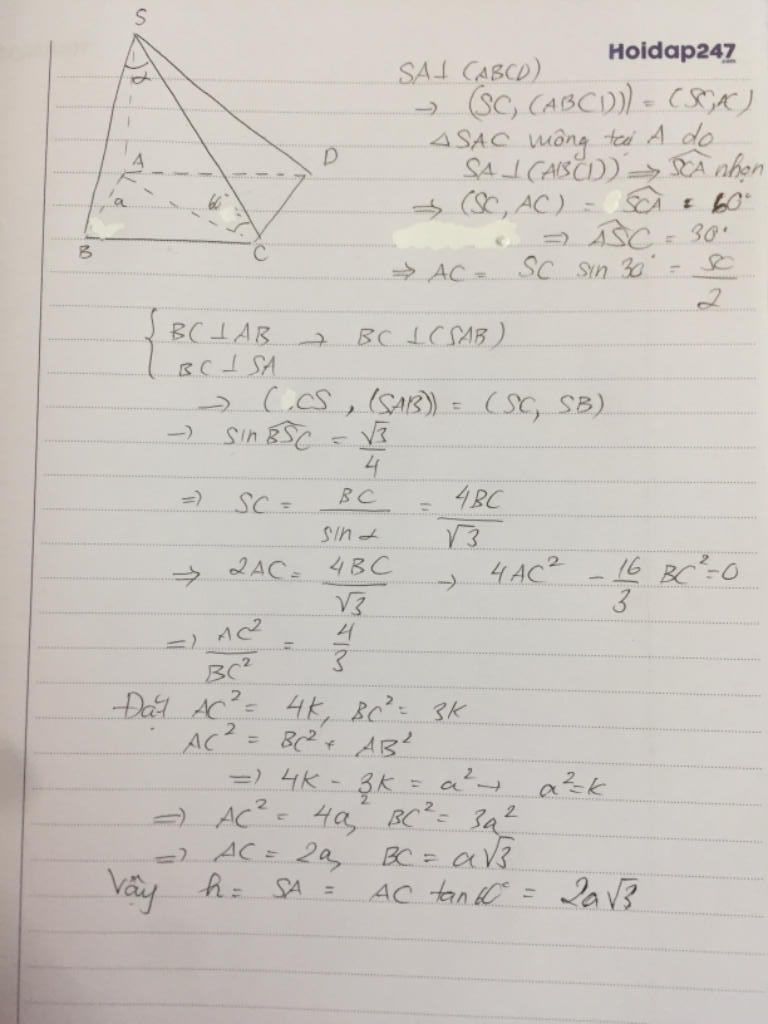 Hoidap247
.com
S
α
A
D
a
60°
B
C
SA⊥(ABCD)
→ (SC, (ABCD)) = (SC, AC)
△SAC vuông tại A do
SA⊥(ABCD) ⇒ SCA nhọn
⇒ (SC, AC) = SCA = 60°
⇒ ASC = 30°
⇒ AC = SC sin 30° = SC/2
{ BC⊥AB → BC⊥(SAB)
BC⊥SA
→ (CS, (SAB)) = (SC, SB)
→ sin BSC = √3/4
⇒ SC = BC/sin α = 4BC/√3
⇒ 2AC = 4BC/√3 → 4AC² - 16/3 BC² = 0
⇒ AC²/BC² = 4/3
Đặt AC² = 4k, BC² = 3k
AC² = BC² + AB²
⇒ 4k - 3k = a² → a² = k
⇒ AC² = 4a², BC² = 3a²
⇒ AC = 2a, BC = a√3
Vậy h = SA = AC tan 60° = 2a√3